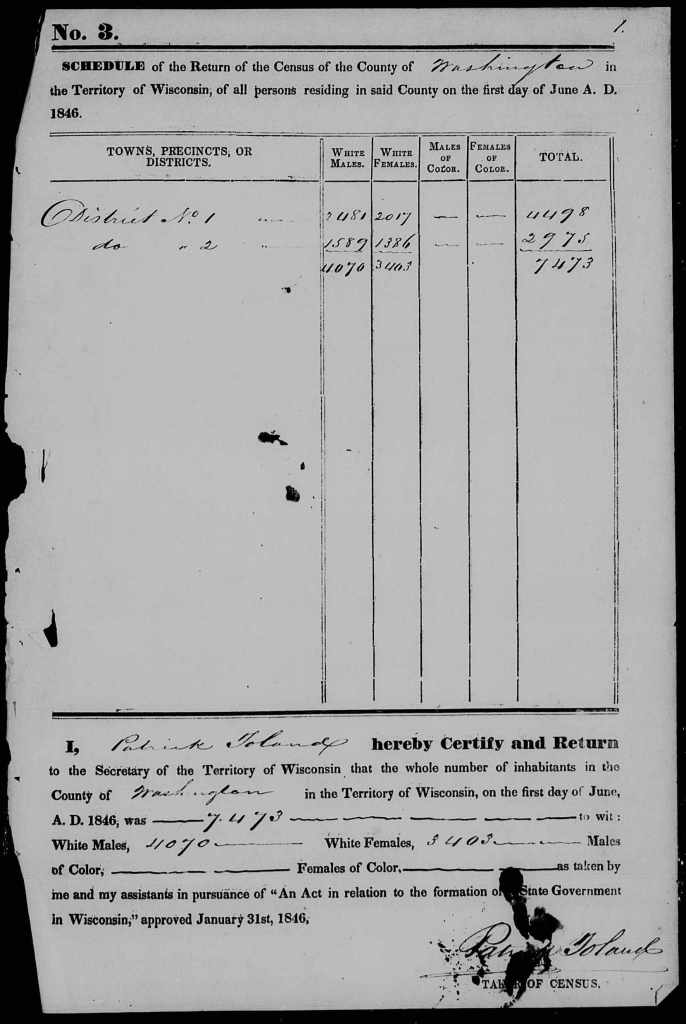 No. 3.
1.
SCHEDULE of the Return of the Census of the County of Washington in
the Territory of Wisconsin, of all persons residing in said County on the first day of June A. D.
1846.
TOWNS, PRECINCTS, OR DISTRICTS. WHITE MALES. WHITE FEMALES. MALES OF COLOR. FEMALES OF COLOR. TOTAL.
District No. 1 " 2481 2017 — — 4498
do " 2 " 1589 1386 — — 2975
4070 3403 7473
I, Patrick Toland hereby Certify and Return
to the Secretary of the Territory of Wisconsin that the whole number of inhabitants in the
County of Washington in the Territory of Wisconsin, on the first day of June,
A. D. 1846, was — 7.473 — — — — — — to wit:
White Males, 4070 — White Females, 3403 — — Males
of Color, — — — — Females of Color, — — — as taken by
me and my assistants in pursuance of "An Act in relation to the formation of a State Government
in Wisconsin," approved January 31st, 1846,
Patrick Toland
TAKER OF CENSUS.